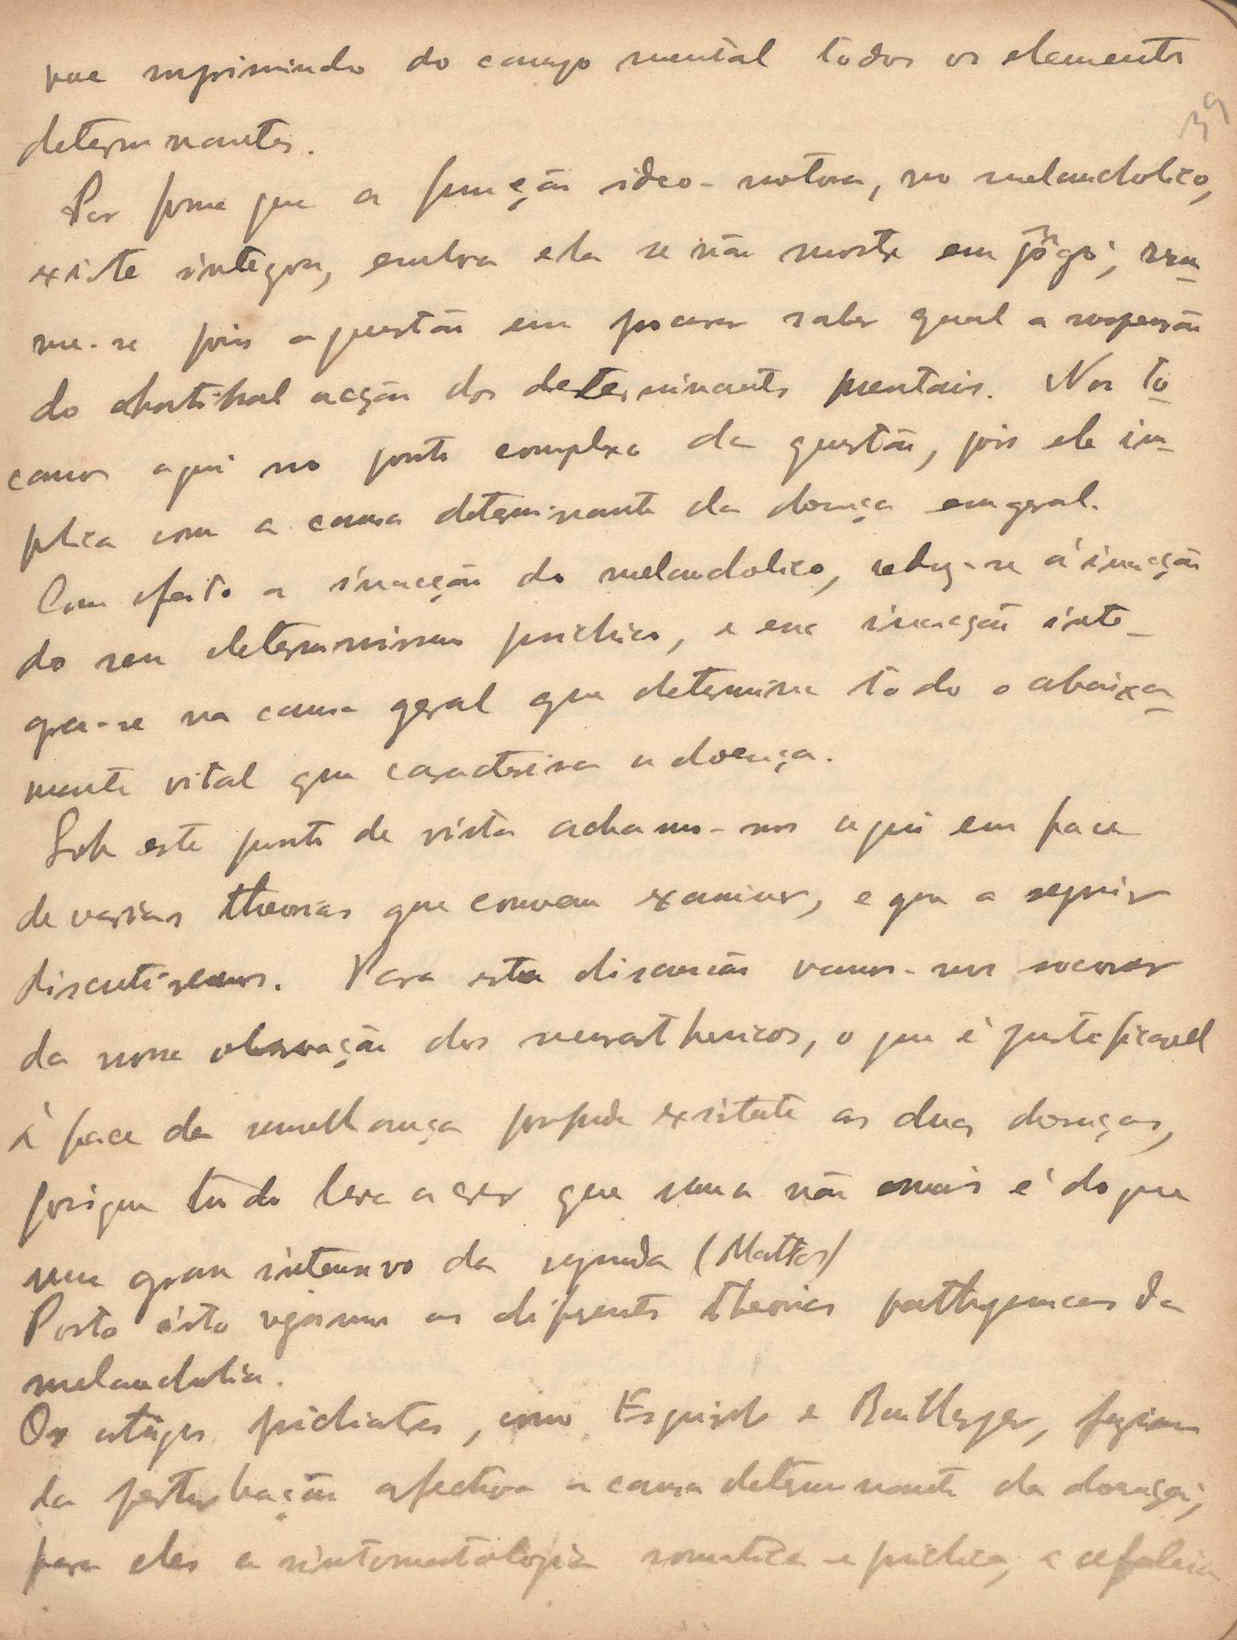 vae suprimindo do campo mental todos os elementos
39
determinantes.
Por forma que a função ideo-motora, no melancholico,
existe integra, embora ela se não mostre em jôgo; resu-
me-se pois a questão em procurar saber qual a suspensão
do habitual acção dos determinantes mentais. Nos to-
camos aqui no ponto complexo da questão, pois ele im-
plica com a causa determinante da doença em geral.
Com efeito a inacção do melancholico, reduz-se á inacção
do seu determinismo psichico, e essa inacção inte-
gra-se na causa geral que determina todo o abaixa-
mento vital que caracterisa a doença.
Sob este ponto de vista achamo-nos aqui em face
de varias theorias que convem examinar, e que a seguir
discutiremos. Para esta discussão vamos-nos socorrer
da nossa observação dos neurasthenicos, o que é justeficavel
á face da semelhança profunda existente as duas doenças,
porque tudo leva a crer que uma não mais é do que
um grau intensivo da segunda (Mattos)
Posto isto vejamos as diferentes theorias pathogenicas da
melancholia.
Os antigos psichiatras, como Esquirol e Baillarger, faziam
da perturbação afectiva a causa determinante da doença;
para eles a sintomatologia somatica e psichica, a cefaleia